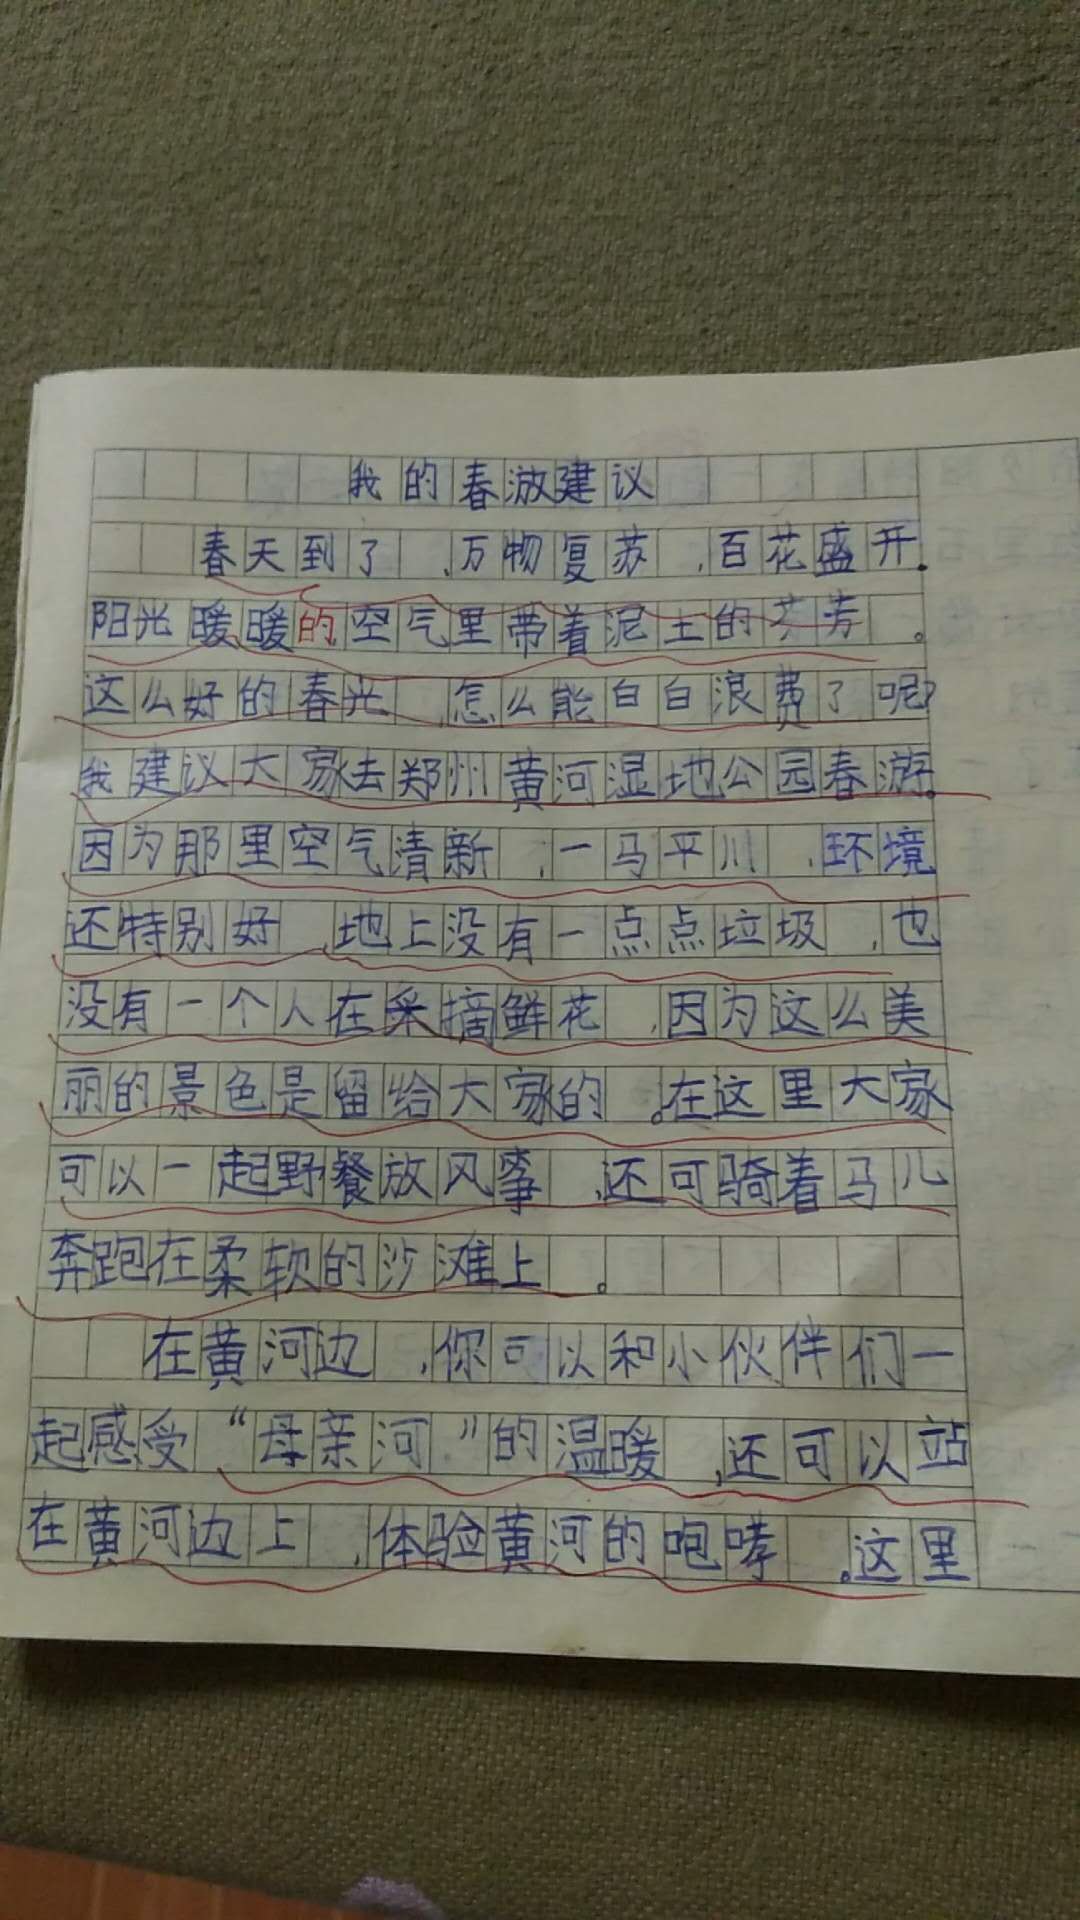 我的春游建议
春天到了,万物复苏,百花盛开.
阳光暖暖的空气里带着泥土的芬芳。
这么好的春光,怎么能白白浪费了呢?
我建议大家去郑州黄河湿地公园春游。
因为那里空气清新,一马平川,环境
还特别好,地上没有一点点垃圾,也
没有一个人在采摘鲜花,因为这么美
丽的景色是留给大家的。在这里大家
可以一起野餐放风筝,还可骑着马儿
奔跑在柔软的沙滩上。
在黄河边,你可以和小伙伴们一
起感受“母亲河”的温暖,还可以站
在黄河边上,体验黄河的咆哮。这里